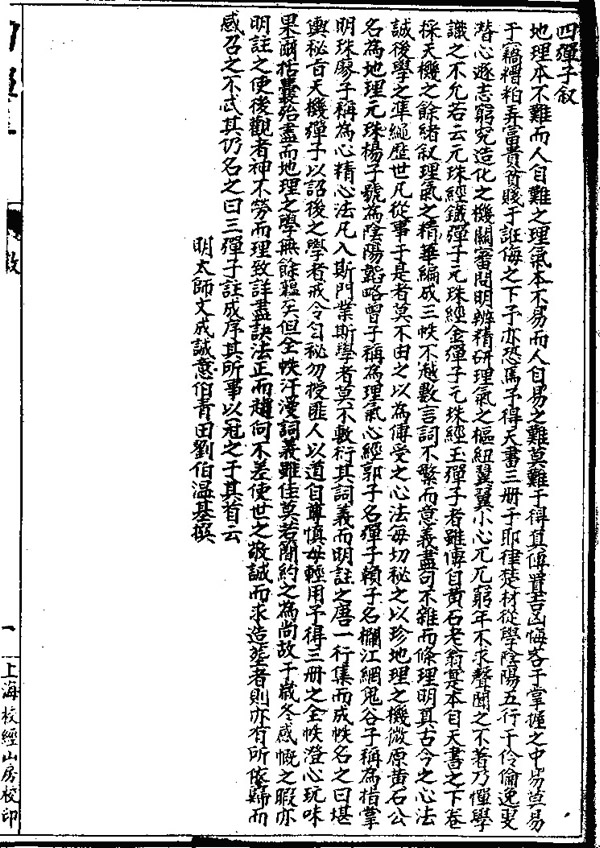 四彈子敘
地理本不難而人自難之理氣本不易而人自易之難莫難于得真傳置吉凶悔吝于掌握之中易莫易
于竊糟粕弄富貴貧賤于誑侮之下予亦恐焉予得天書三冊于耶律楚材從學陰陽五行于伶倫逸叟
潛心遂志窮究造化之機關審問明辨精研理氣之樞紐翼翼小心兀兀窮年不求聲聞之不著乃憚學
識之不允若云元珠經鐵彈子元珠經金彈子元珠經玉彈子者雖傳自黃石老翁是本自天書之下卷
採天機之餘緒敘理氣之精華編成三帙不越數言詞不繁而意義盡句不雜而條理明真古今之心法
誠後學之準繩歷世凡從事于是者莫不由之以為傳受之心法每切秘之以珍地理之機微原黃石公
名為地理元珠楊子號為陰陽韜略曾子稱為理氣心經郭子名彈子賴子名欄江網鬼谷子稱為指掌
明珠廖子稱為心精心法凡入斯門業斯學者莫不敷衍其詞義而明註之唐一行集而成帙名之曰堪
輿秘旨天機彈子以詔後之學者戒令勿秘勿授匪人以道自尊慎毋輕用予得三冊之全帙澄心玩味
果爾括囊殆盡而地理之學無餘蘊矣但全帙汗漫詞義雖佳莫若簡約之為尚故于歲冬感慨之暇亦
明註之使後觀者神不勞而理致詳盡訣法正而趨向不差使世之敬誠而求造塋者則亦有所依歸而
感召之不忒其仍名之曰三彈子註成序其所事以冠之于其首云
明太師文成誠意伯青田劉伯溫基撰
敘
一
上海校經山房校印